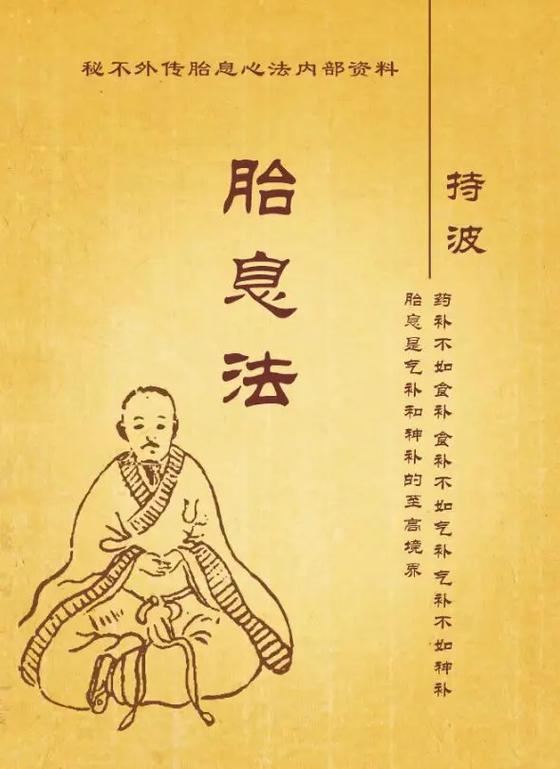 秘不外传胎息心法内部资料
胎息法
持波
药补不如食补食补不如气补气补不如神补
胎息是气补和神补的至高境界